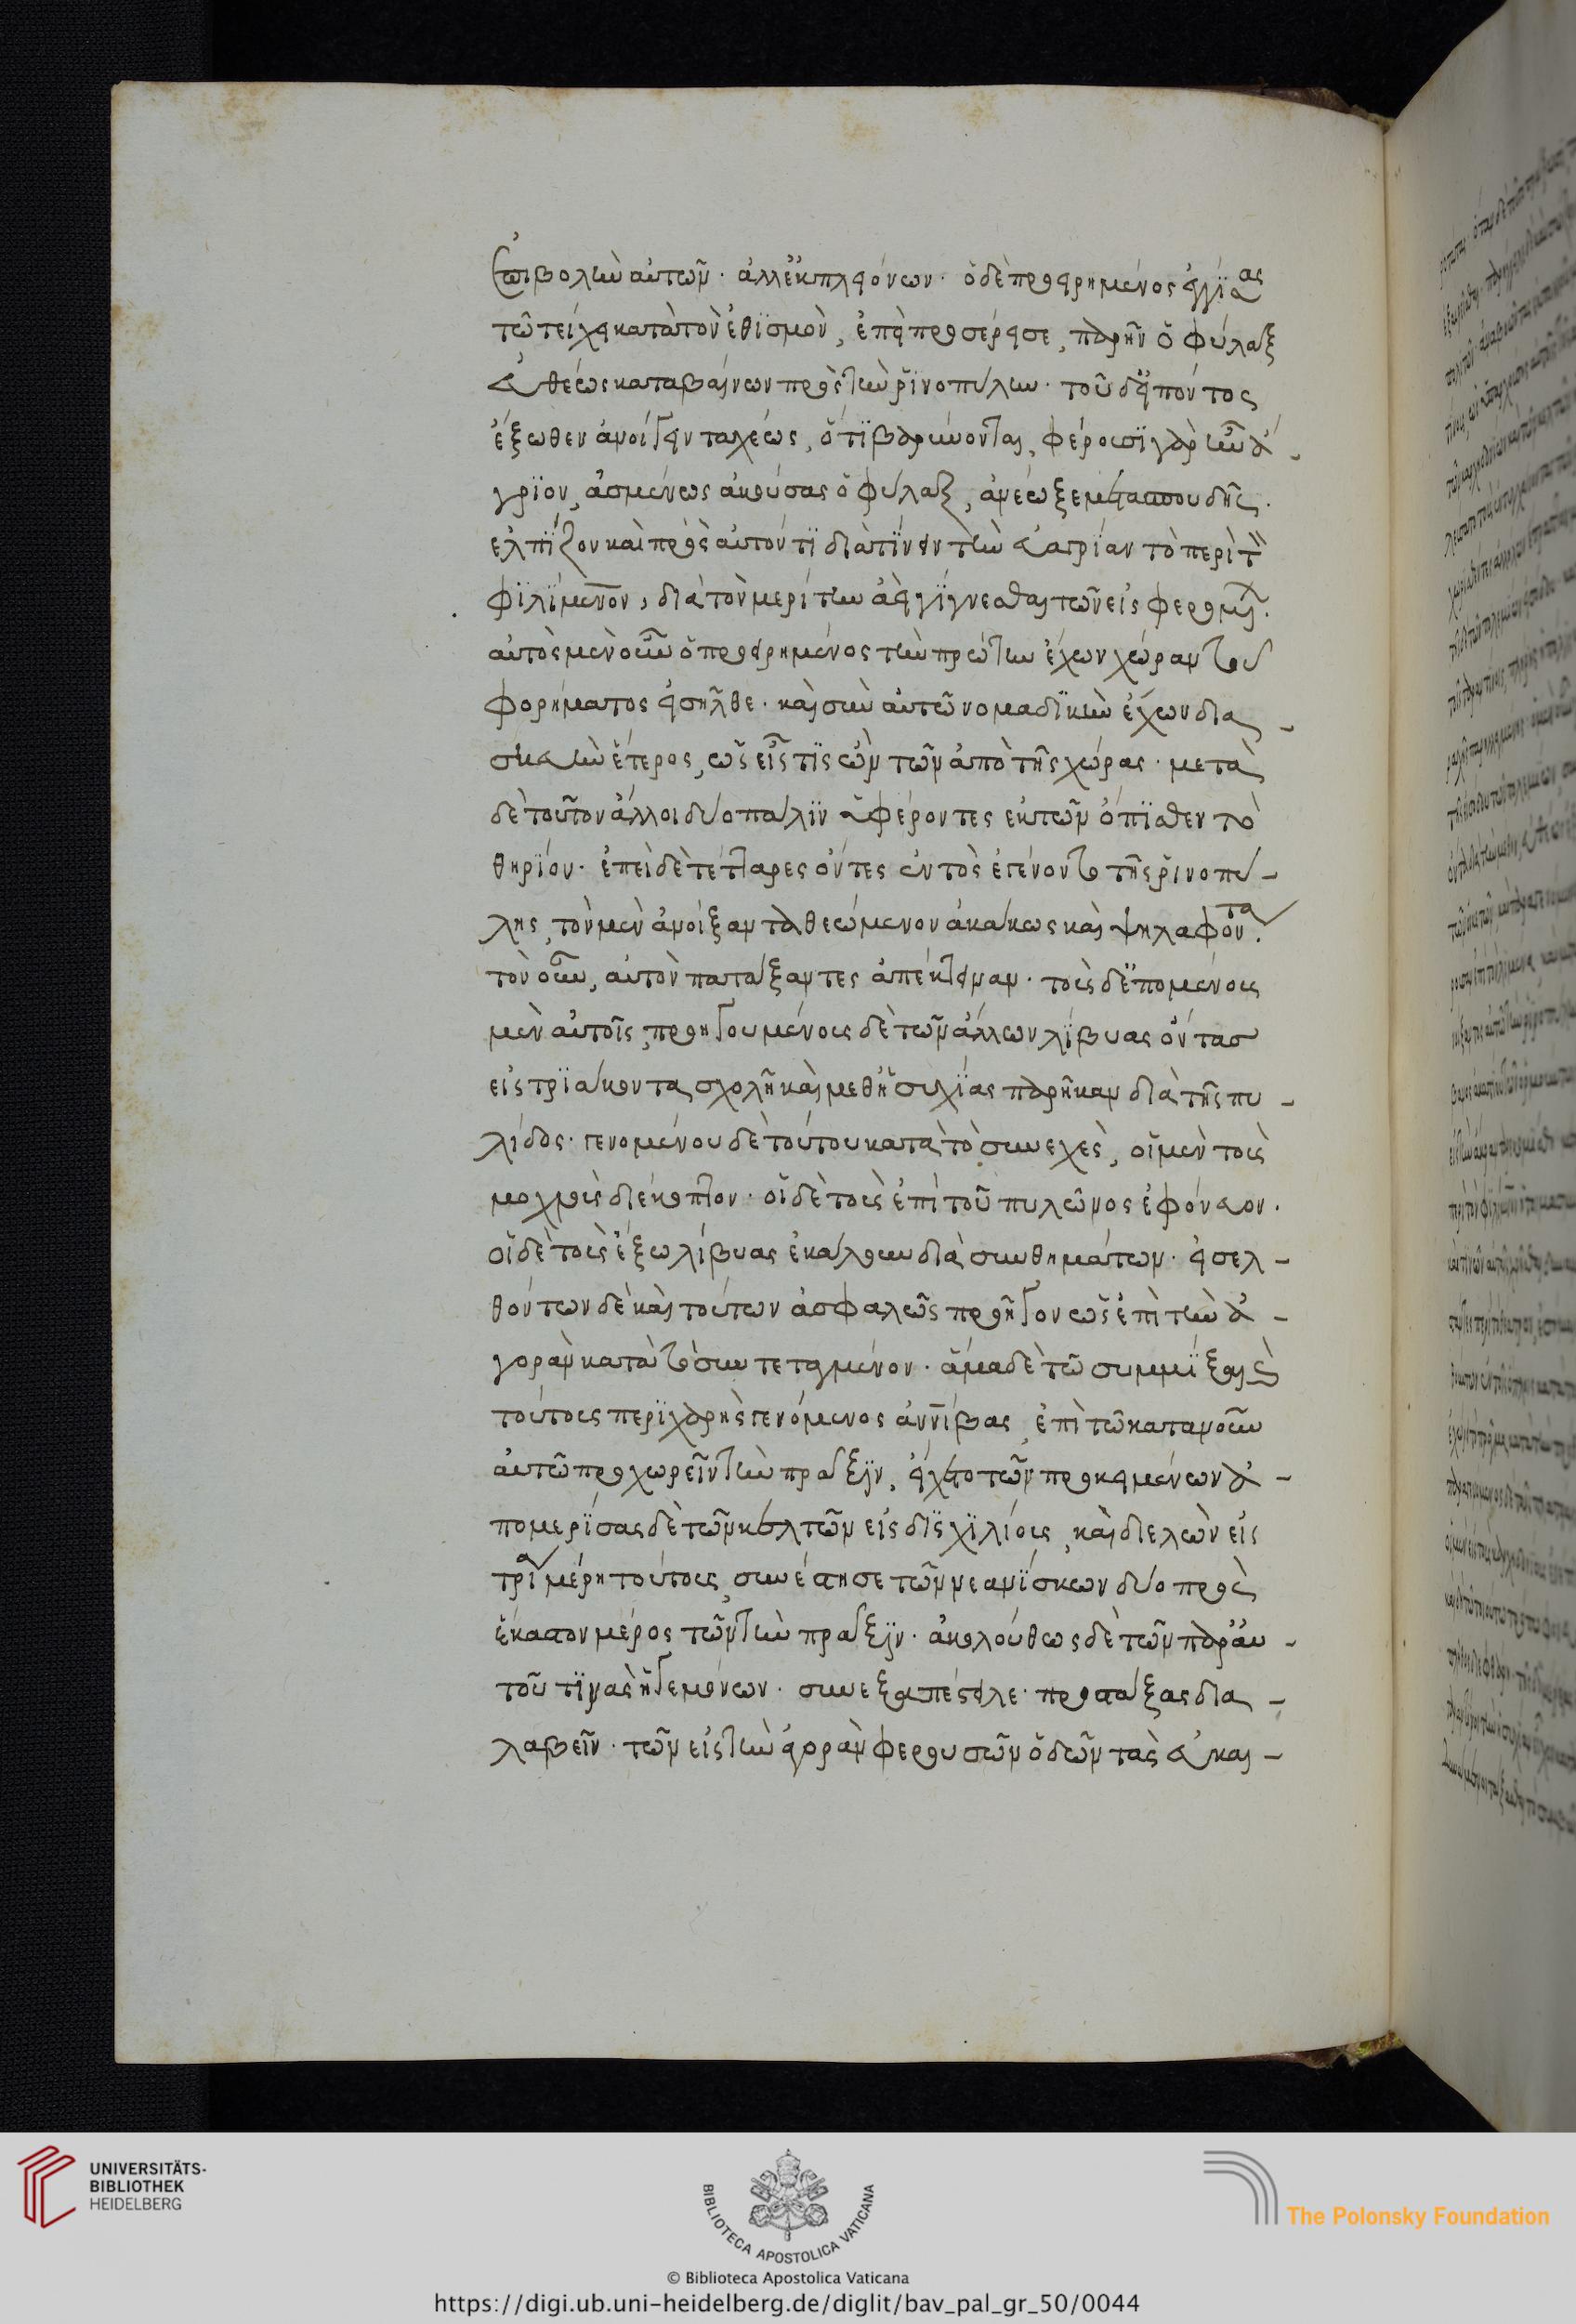 ἐπιβολὴν αὐτῶν· ἀλλἐκπλειόνων· ὁ δὲ προειρημένος ἐγγΐσας
τῶ τείχει κατὰ τὸν ἐθϊσμὸν, ἐπεὶ προσέρεισε, παρῆν ὁ φύλαξ
εὐθέως καταβαίνων πρὸς τὴν ῥϊνοπύλην· τοῦ δεἰπόντος
ἔξωθεν ἀνοίγειν ταχέως, ὅτϊ βαρύνονται, φέρουσϊ γὰρ ὗν ἄ-
γρϊον, ἀσμένως ἀκούσας ὁ φύλαξ, ἀνέωξε μετασπουδῆς.
ἐλπΐζον καὶ πρὸς αὐτόν τϊ διατΐνειν τὴν εὐαγρίαν τὸ περὶ τὸν
φϊλΐμενον, διὰ τὸν μερίτην ἀεὶ γΐγνεσθαι τῶν εἰσφερομένων.
αὐτὸς μὲν οὖν ὁ προειρημένος τὴν πρώτην ἔχων χώραν τοῦ
φορήματος εἰσῆλθε· καὶ σὺν αὐτῶ νομαδϊκὴν ἔχων δια-
σκευὴν ἕτερος, ὡς εἷς τϊς ὢν τῶν ἀπὸ τῆς χώρας· μετὰ
δὲ τοῦτον ἄλλοι δύο πάλϊν οἱ φέροντες ἐκ τῶν ὄπϊσθεν τὸ
θηρΐον· ἐπεὶ δὲ τέτταρες ὄντες ἐντὸς ἐγένοντο τῆς ῥινοπύ-
λης, τὸν μὲν ἀνοίξαντα θεώμενον ἀκάκως καὶ ψηλαφοντα
τὸν οὖν, αὐτὸν πατάξαντες ἀπέκτειναν· τοὺς δἑπομένους
μὲν αὐτοῖς, προηγουμένους δὲ τῶν ἄλλων λΐβυας ὄντας
εἰς τρϊάκοντα σχολῆ καὶ μεθἡσυχΐας παρῆκαν διὰ τῆς πυ-
λίδος· γενομένου δὲ τούτου κατὰ τὸ συνεχὲς, οἱ μὲν τοὺς
μοχλοὺς διέκοπτον· οἱ δὲ τοὺς ἐπὶ τοῦ πυλῶνος ἐφόνευον·
οἱ δὲ τοὺς ἔξω λίβυας ἐκάλουν διὰ συνθημάτων· εἰσελ-
θόντων δὲ καὶ τούτων ἀσφαλῶς προῆγον ὡς ἐπὶ τὴν ἀ-
γορὰν κατὰ τὸ συντεταγμένον· ἅμα δὲ τῶ συμμΐξαι
τούτους περϊχαρὴς γενόμενος ἀννΐβας, ἐπὶ τῶ κατανοῦν
αὐτῶ προχωρεῖν τὴν πρᾶξϊν, εἴχετο τῶν προκειμένων ἀ-
πομερΐσας δὲ τῶν κελτῶν εἰς δϊσχϊλίους, καὶ διελὼν εἰς
τρία μέρη τούτους, συνέστησε τῶν νεανΐσκων δύο πρὸς
ἕκαστον μέρος τῶν τὴν πρᾶξϊν· ἀκολούθως δὲ τῶν παραὑ-
τοῦ τϊνὰς ἡγεμόνων· συνεξαπέστειλε· προστάξας δια-
λαβεῖν· τῶν εἰς τὴν ἀγορὰν φερουσῶν ὁδῶν τὰς εὐκαι-
UNIVERSITÄTS-
BIBLIOTHEK
HEIDELBERG
BIBLIOTECA APOSTOLICA VATICANA
The Polonsky Foundation
© Biblioteca Apostolica Vaticana
https://digi.ub.uni-heidelberg.de/diglit/bav_pal_gr_50/0044